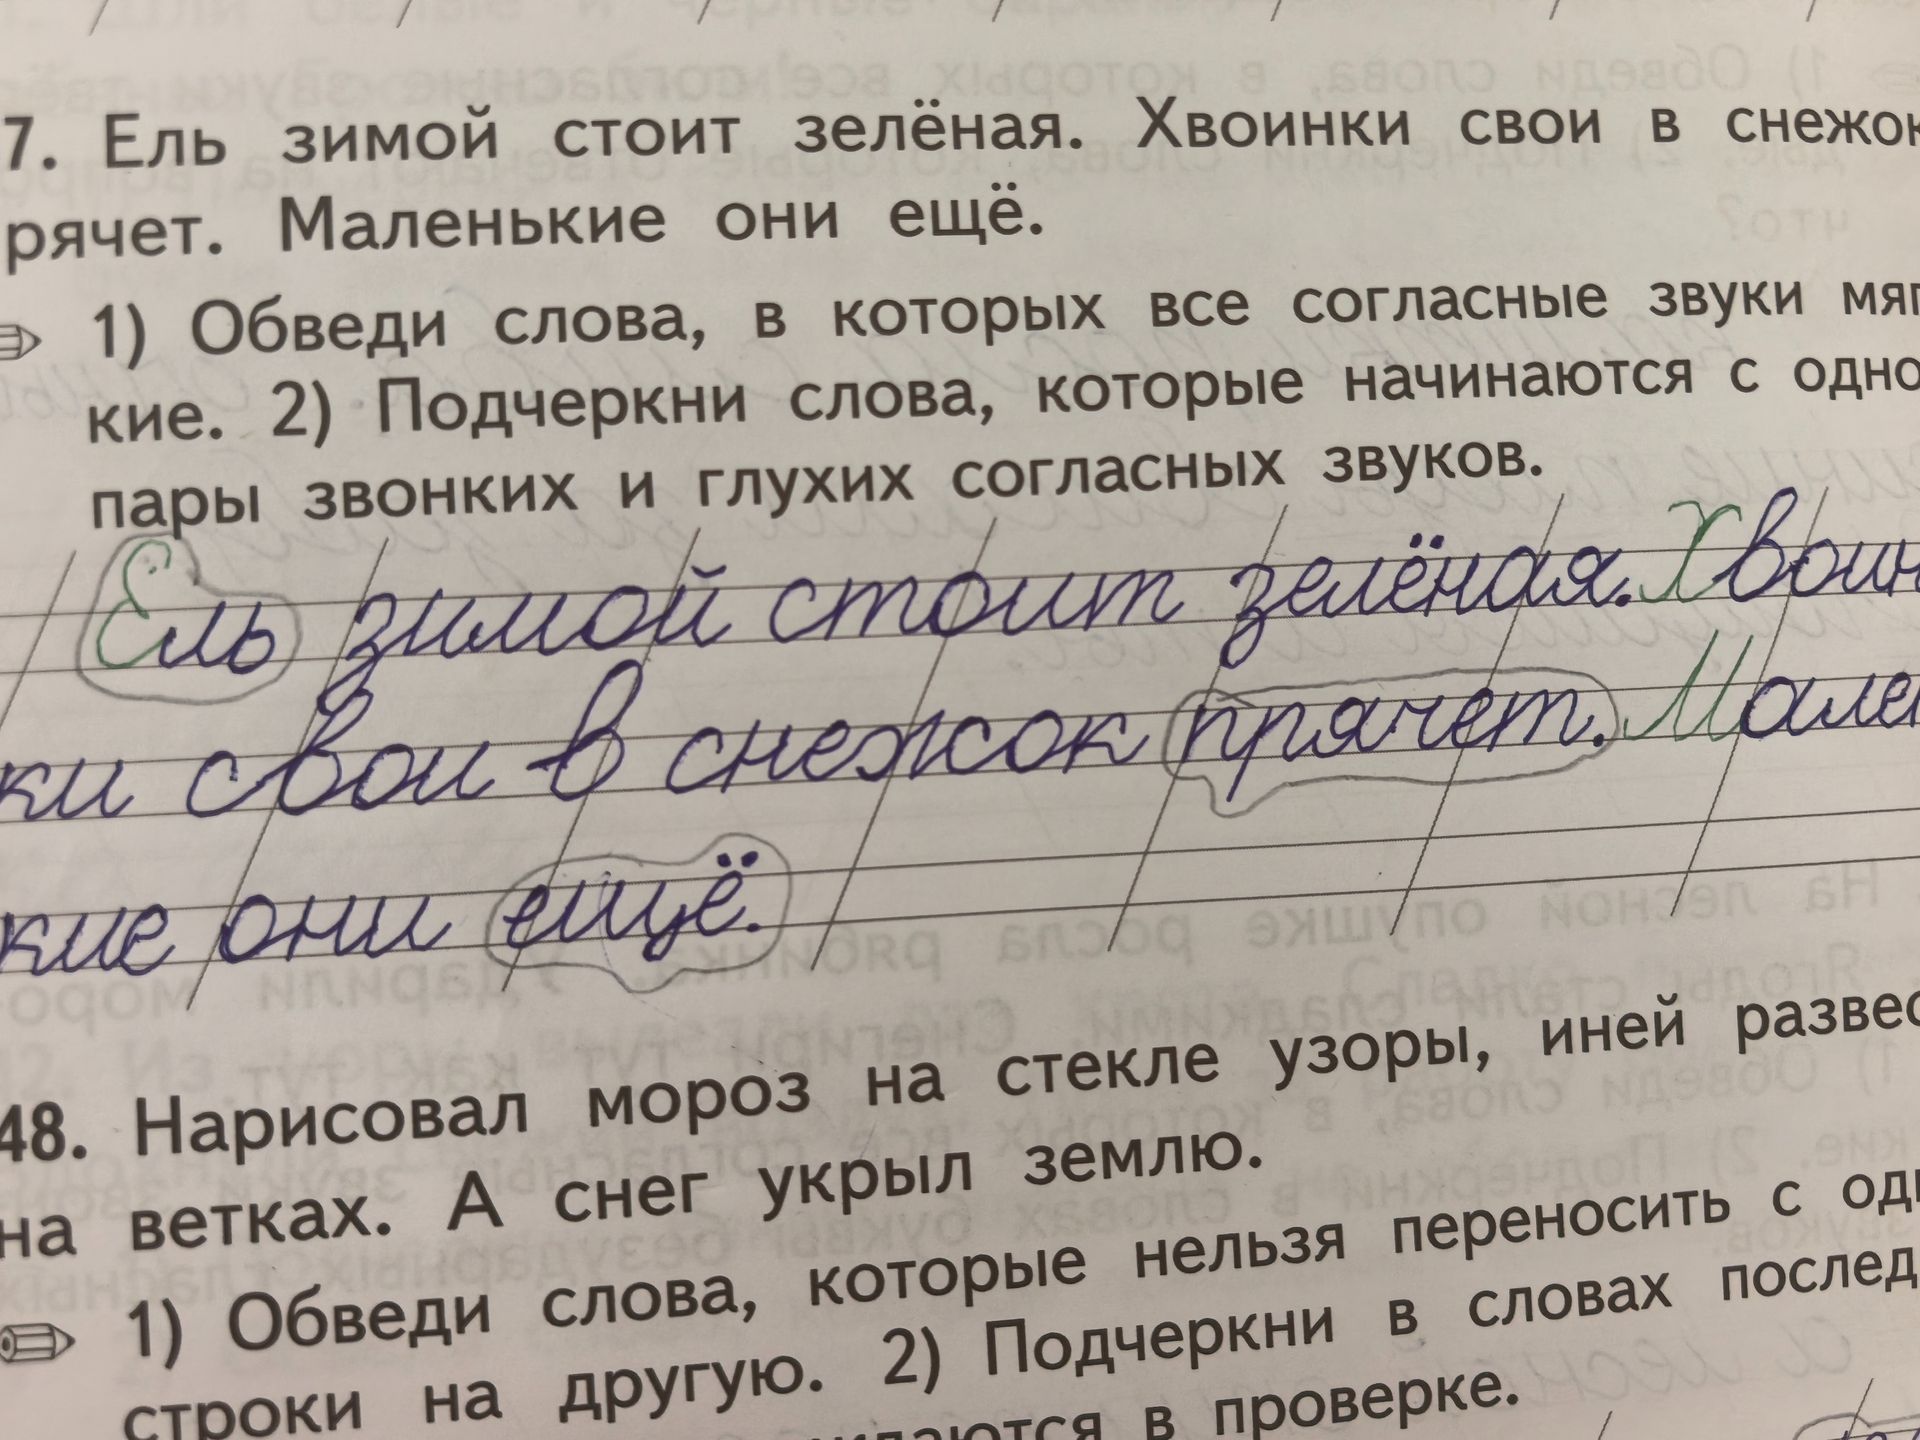 7. Ель зимой стоит зелёная. Хвоинки свои в снежок
рячет. Маленькие они ещё.
1) Обведи слова, в которых все согласные звуки мяг
кие. 2) Подчеркни слова, которые начинаются с одно
пары звонких и глухих согласных звуков.
Ель зимой стоит зелёная. Хвоин
ки свои в снежок прячет. Мален
кие они ещё.
48. Нарисовал мороз на стекле узоры, иней развес
на ветках. А снег укрыл землю.
1) Обведи слова, которые нельзя переносить с одн
строки на другую. 2) Подчеркни в словах послед
в проверке.